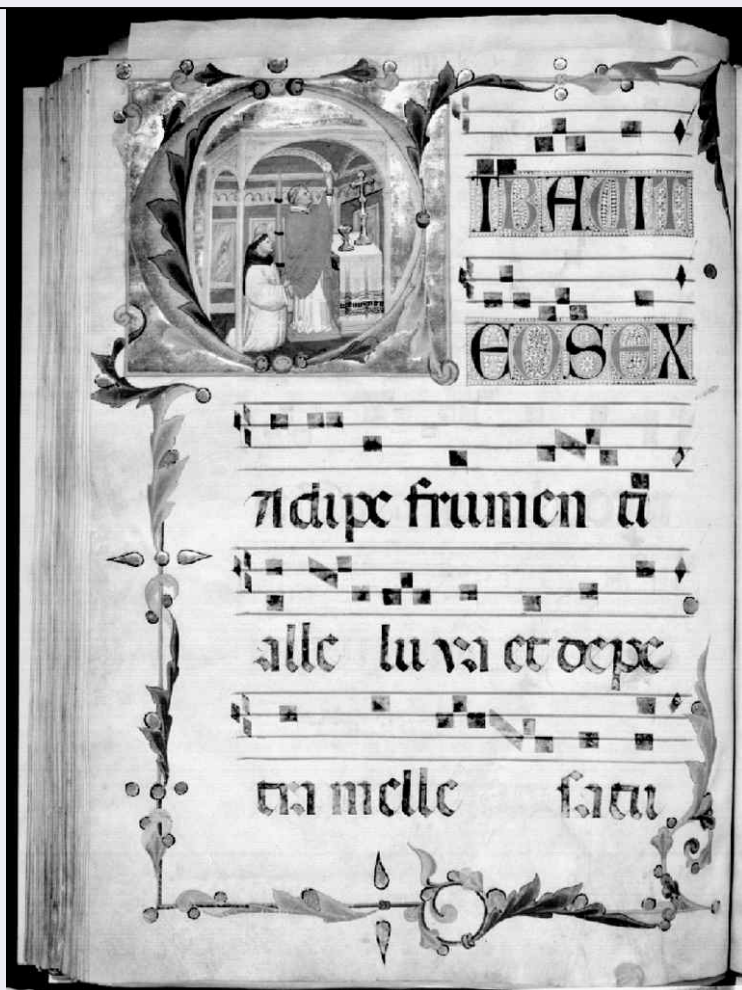 CIBAVIT
EOS EX
Adipe frumen ti
alle lu ya et de pe
tra melle satu